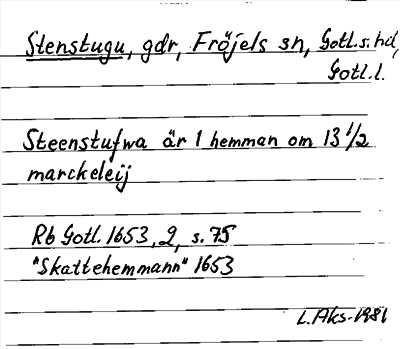 Stenstugu, gdr, Fröjels sn, Gotl.s.hd,
Gotl.l.
Steenstufwa är 1 hemman om 13 1/2
marckeleij
Rb Gotl. 1653, 2, s. 75
"Skattehemmann" 1653
L.Aks-1981